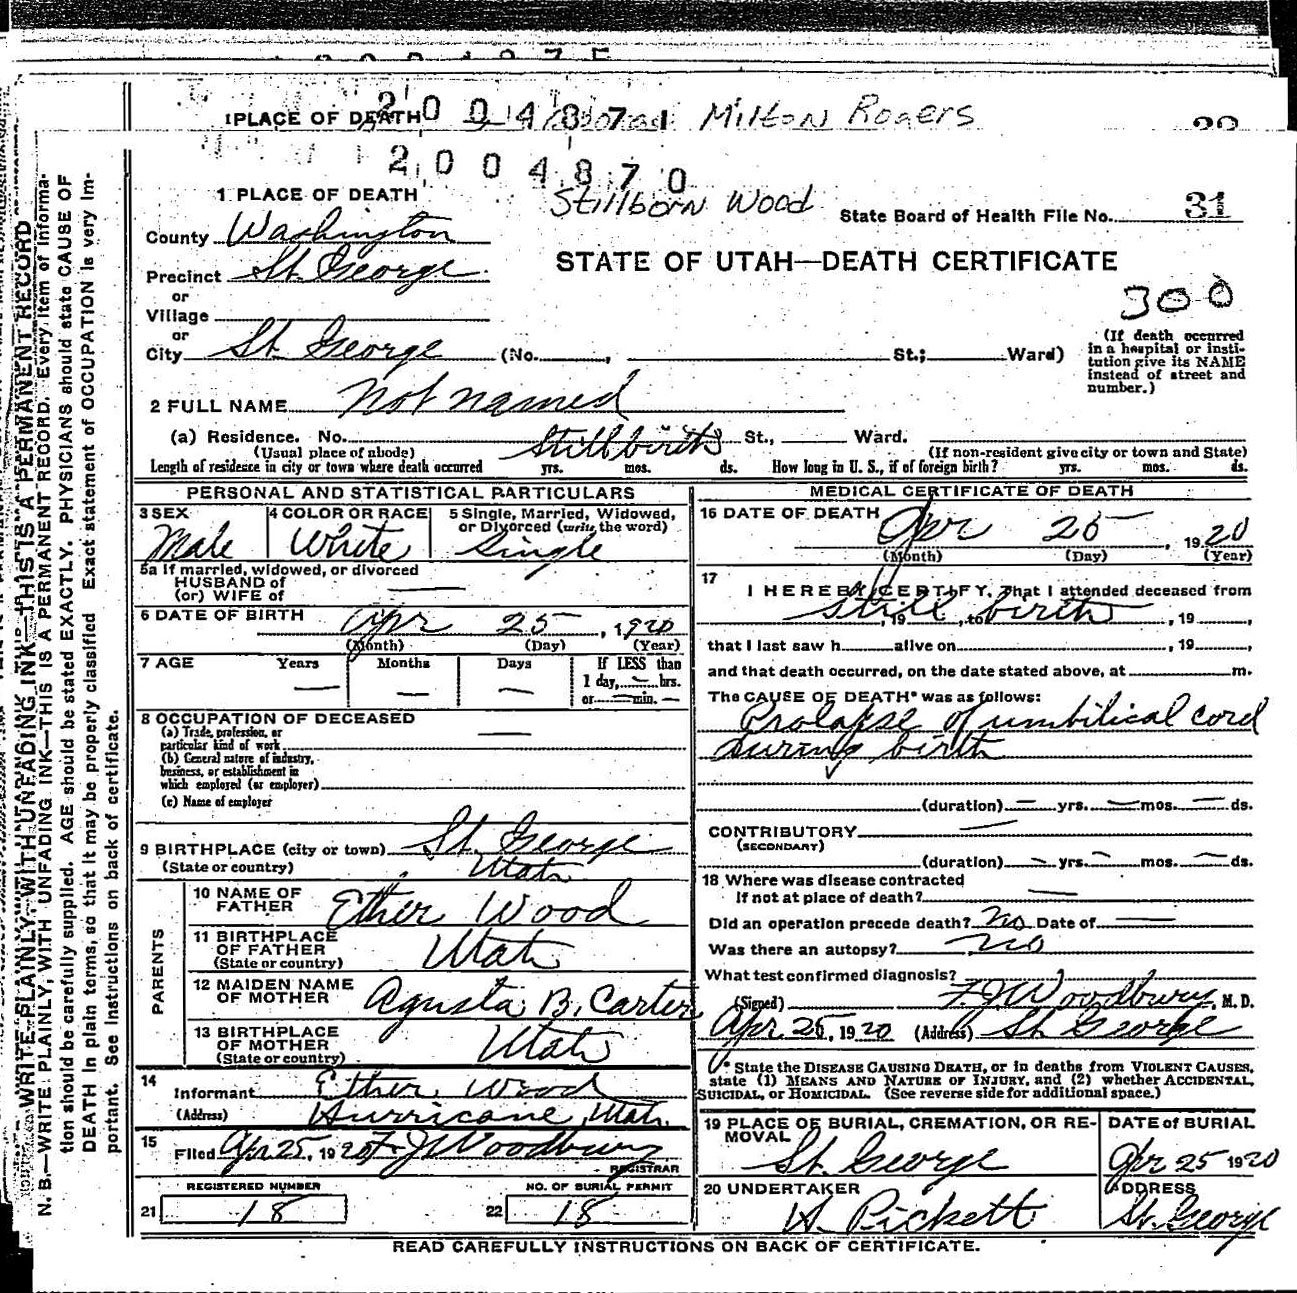 1 PLACE OF DEATH 2004871 Milton Rogers
2004870
1 PLACE OF DEATH Stillborn Wood State Board of Health File No. 31
County Washington
STATE OF UTAH—DEATH CERTIFICATE
Precinct St. George
300
or
Village
or
City St. George (No. , St.; Ward)
(If death occurred in a hospital or insti-
tution give its NAME
instead of street and
number.)
2 FULL NAME Not named
(a) Residence. No. Stillbirth St., Ward.
(Usual place of abode) (If non-resident give city or town and State)
Length of residence in city or town where death occurred yrs. mos. ds. How long in U. S., if of foreign birth? yrs. mos. ds.
PERSONAL AND STATISTICAL PARTICULARS
3 SEX 4 COLOR OR RACE 5 Single, Married, Widowed,
or Divorced (write the word)
Male White Single
5a If married, widowed, or divorced
HUSBAND of
(or) WIFE of —
6 DATE OF BIRTH Apr 25, 1920
(Month) (Day) (Year)
7 AGE Years Months Days If LESS than
1 day, — hrs.
— — — or — min. —
8 OCCUPATION OF DECEASED
(a) Trade, profession, or
particular kind of work —
(b) General nature of industry,
business, or establishment in
which employed (or employer)
(c) Name of employer
9 BIRTHPLACE (city or town) St. George
(State or country) Utah
PARENTS
10 NAME OF
FATHER Ether Wood
11 BIRTHPLACE
OF FATHER
(State or country) Utah
12 MAIDEN NAME
OF MOTHER Agusta B. Carter
13 BIRTHPLACE
OF MOTHER
(State or country) Utah
14
Informant Ether Wood
(Address) Hurricane, Utah.
15
Filed Apr 25, 1920 F. J. Woodbury
REGISTRAR
REGISTERED NUMBER NO. OF BURIAL PERMIT
21 18 22 18
MEDICAL CERTIFICATE OF DEATH
16 DATE OF DEATH Apr 25, 1920
(Month) (Day) (Year)
17
I HEREBY CERTIFY, That I attended deceased from
still birth , 19 , to , 19 ,
that I last saw h alive on , 19 ,
and that death occurred, on the date stated above, at m.
The CAUSE OF DEATH* was as follows:
Prolapse of umbilical cord
during birth
(duration) — yrs. — mos. — ds.
CONTRIBUTORY —
(SECONDARY)
(duration) — yrs. — mos. — ds.
18 Where was disease contracted
If not at place of death? —
Did an operation precede death? No Date of —
Was there an autopsy? No
What test confirmed diagnosis?
(Signed) F. J. Woodbury, M. D.
Apr. 25, 1920 (Address) St. George
* State the DISEASE CAUSING DEATH, or in deaths from VIOLENT CAUSES,
state (1) MEANS AND NATURE OF INJURY, and (2) whether ACCIDENTAL,
SUICIDAL, or HOMICIDAL. (See reverse side for additional space.)
19 PLACE OF BURIAL, CREMATION, OR RE-
MOVAL St. George
DATE of BURIAL
Apr 25 1920
20 UNDERTAKER
H. Pickett
ADDRESS
St. George
READ CAREFULLY INSTRUCTIONS ON BACK OF CERTIFICATE.
WRITE PLAINLY WITH UNFADING INK—THIS IS A PERMANENT RECORD
N. B.—WRITE PLAINLY, WITH UNFADING INK—THIS IS A PERMANENT RECORD. Every item of informa-
tion should be carefully supplied. AGE should be stated EXACTLY. PHYSICIANS should state CAUSE OF
DEATH in plain terms, so that it may be properly classified Exact statement of OCCUPATION is very im-
portant. See instructions on back of certificate.